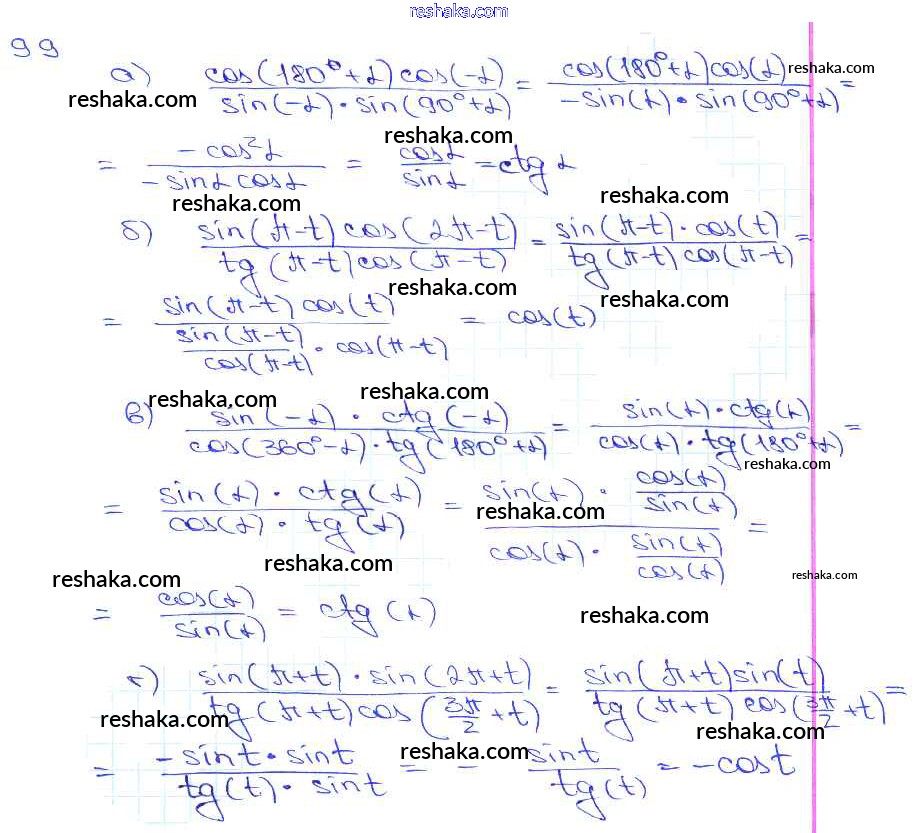 reshaka.com
99
а) cos(180°+α) cos(-α) / sin(-α) · sin(90°+α) = cos(180°+α) cos(α) / -sin(α) · sin(90°+α) =
reshaka.com
reshaka.com
reshaka.com
= -cos²α / -sinα cosα = cosα / sinα = ctg α
reshaka.com
reshaka.com
б) sin(π-t) cos(2π-t) / tg(π-t) cos(π-t) = sin(π-t) · cos(t) / tg(π-t) cos(π-t) =
reshaka.com
reshaka.com
= sin(π-t) cos(t) / sin(π-t) / cos(π-t) · cos(π-t) = cos(t)
reshaka.com
reshaka.com
в) sin(-α) · ctg(-α) / cos(360°-α) · tg(180°+α) = sin(α) · ctg(α) / cos(α) · tg(180°+α) =
reshaka.com
= sin(α) · ctg(α) / cos(α) · tg(α) = sin(α) · cos(α) / sin(α) / cos(α) · sin(α) / cos(α) =
reshaka.com
reshaka.com
reshaka.com
reshaka.com
= cos(α) / sin(α) = ctg(α)
reshaka.com
г) sin(π+t) · sin(2π+t) / tg(π+t) cos(3π/2 + t) = sin(π+t) sin(t) / tg(π+t) cos(3π/2 + t) =
reshaka.com
reshaka.com
reshaka.com
= -sint · sint / tg(t) · sint = - sint / tg(t) = -cost